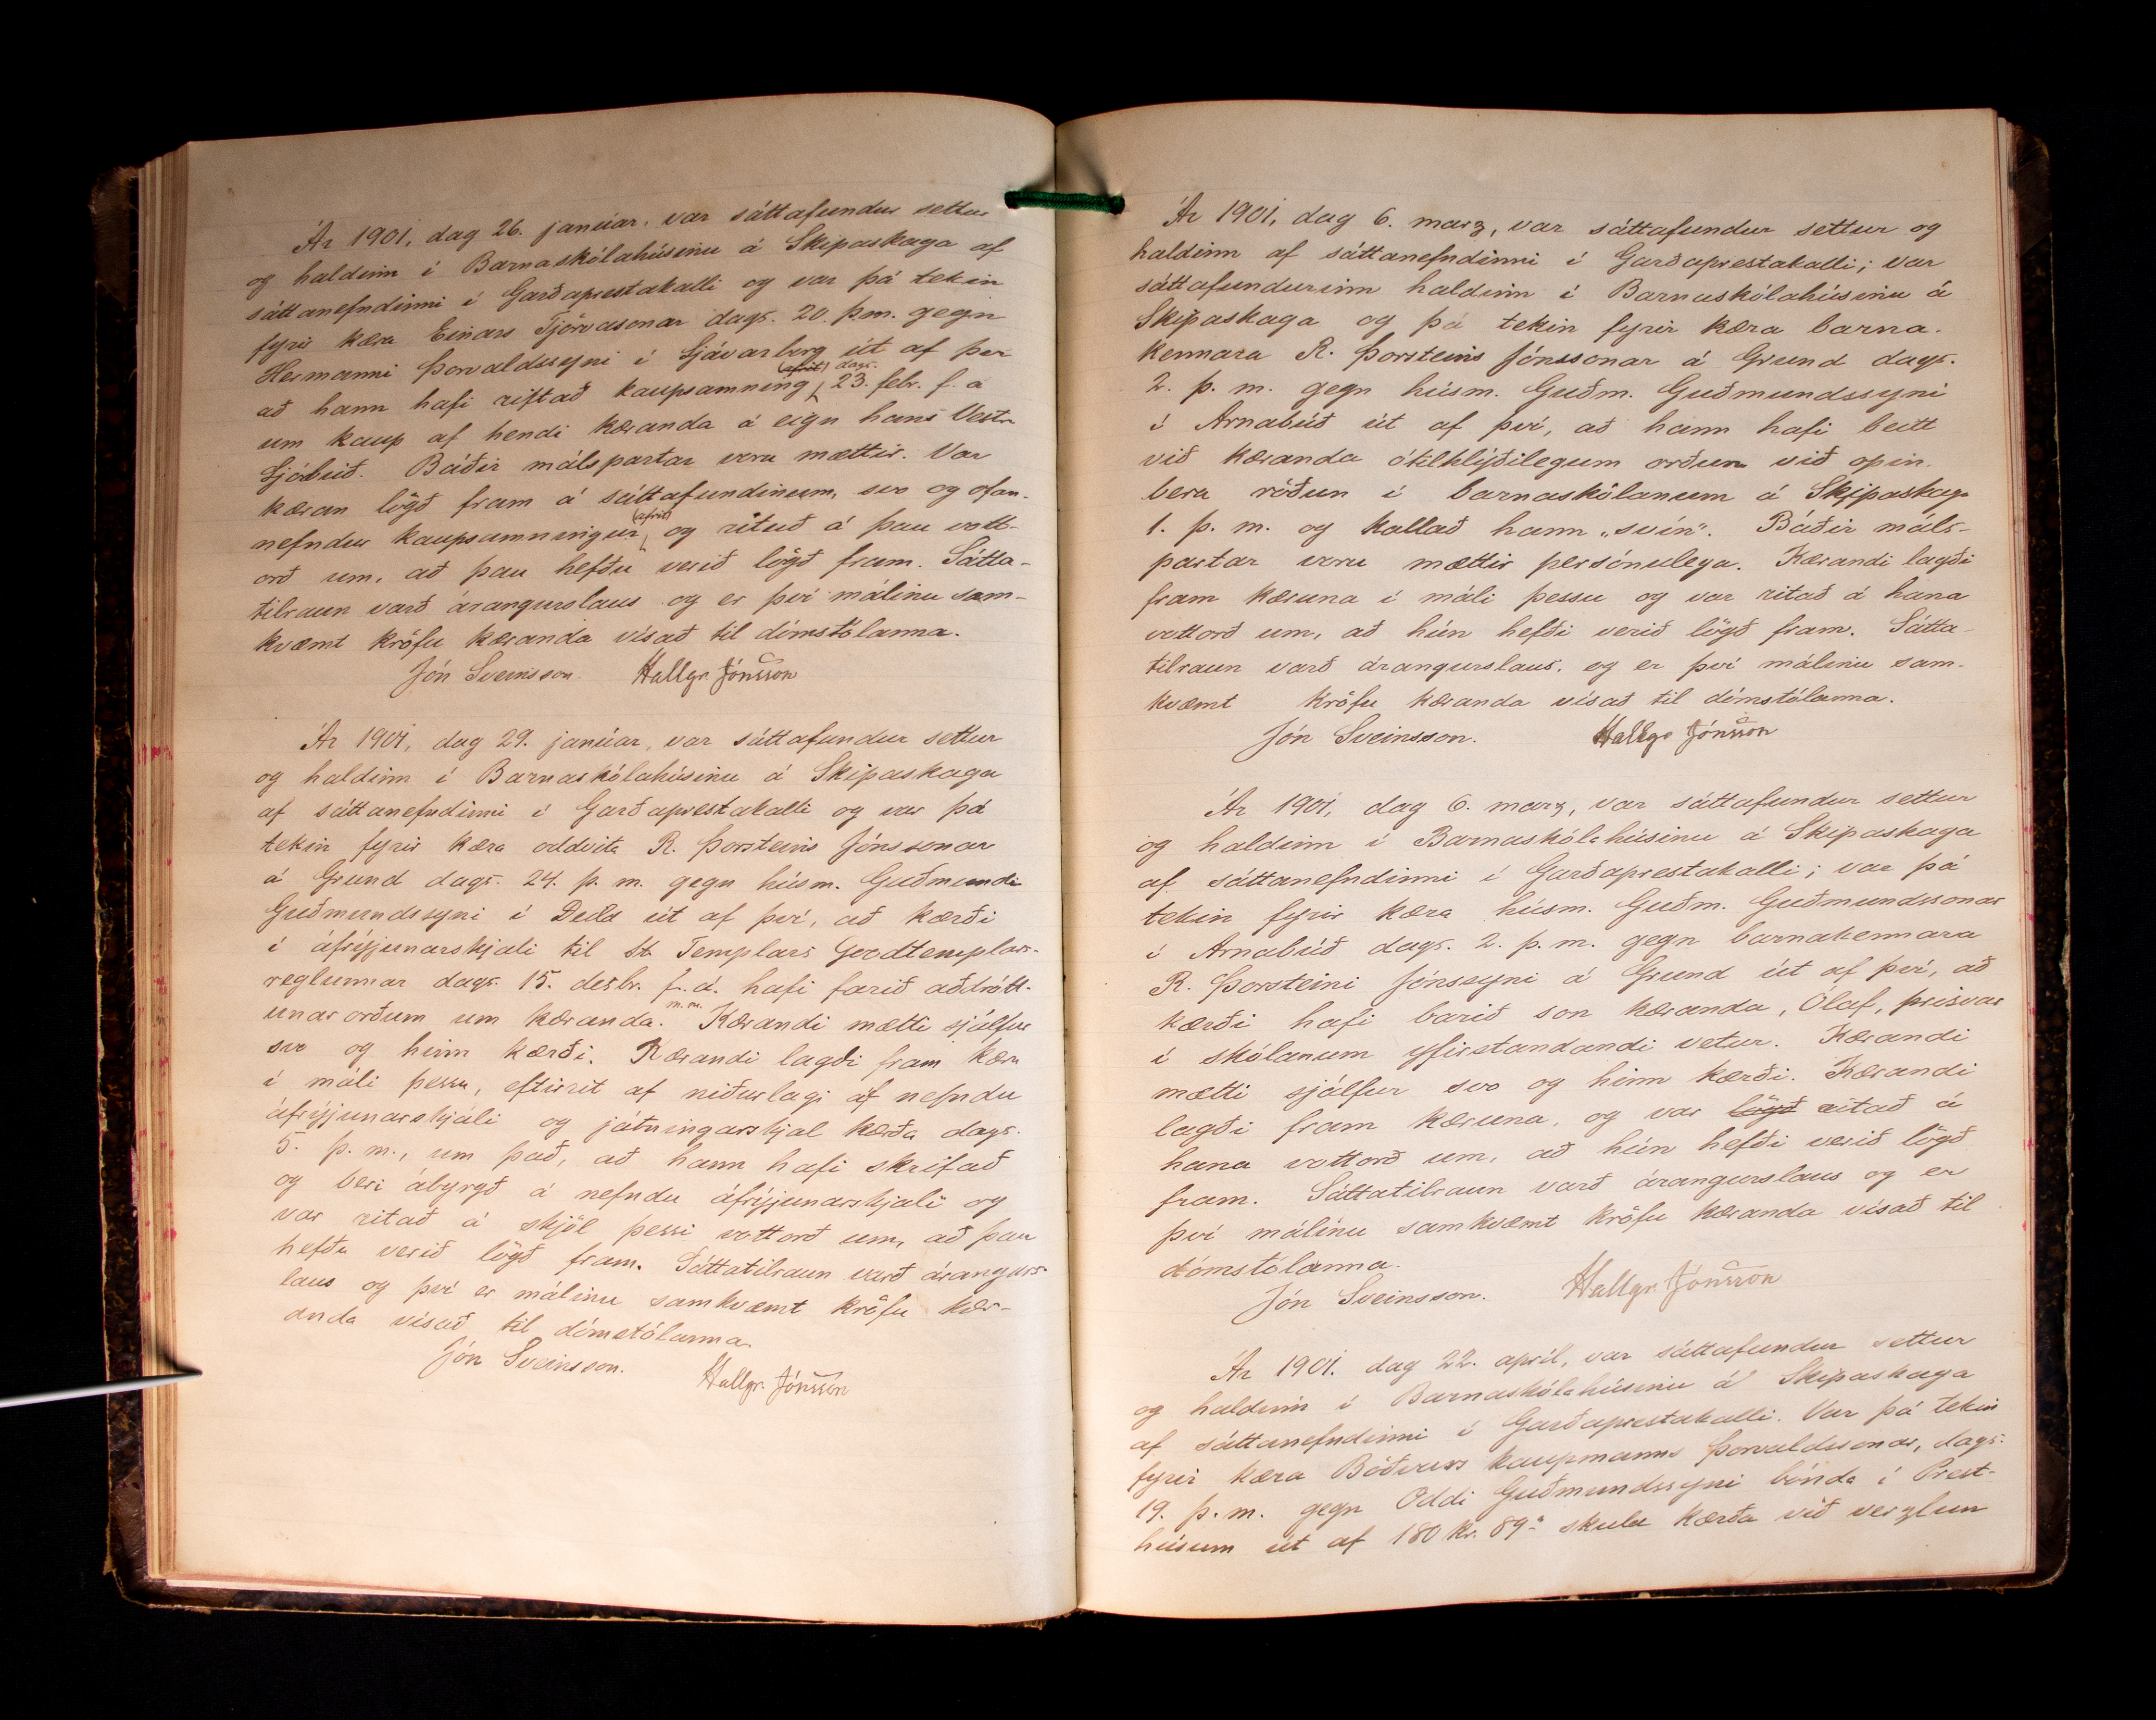 Ár 1901, dag 26. janúar, var sáttafundur settur
og haldinn í Barnaskólahúsinu á Skipaskaga af
sáttanefndinni í Garðaprestakalli og var þá tekin
fyrir kæra Einars Tjörvasonar dags. 20. þ.m. gegn
Hermanni Þorvaldssyni í Sjávarborg út af því
að hann hafi riftað kaupsamning (afrit) dags. 23. febr. f. á
um kaup af hendi kæranda á eign hans Vestri
Sjóbúð. Báðir málspartar voru mættir. Var
kæran lögð fram á sáttafundinum, svo og ofan-
nefndur kaupsamningur (afrit) og rituð á þau vott-
orð um, að þau hefðu verið lögð fram. Sátta-
tilraun varð árangurslaus og er því málinu sam-
kvæmt kröfu kæranda vísað til dómstólanna.
Jón Sveinsson. Hallgr. Jónsson
Ár 1901, dag 29. janúar, var sáttafundur settur
og haldinn í Barnaskólahúsinu á Skipaskaga
af sáttanefndinni í Garðaprestakalli og var þá
tekin fyrir kæra oddvita R. Þorsteins Jónssonar
á Grund dags. 24. þ. m. gegn húsm. Guðmundi
Guðmundssyni í Deild út af því, að kærði
í áfrýjunarskjali til St. Templars Goodtemplars-
reglunnar dags. 15. desbr. f. á. hafi farið aðdrótt-
unarorðum um kæranda. m.m. Kærandi mætti sjálfur
svo og hinn kærði. Kærandi lagði fram kæru
í máli þessu, eftirrit af niðurlagi af nefndu
áfrýjunarskjali og játningarskjal kærða dags.
5. þ. m., um það, að hann hafi skrifað
og beri ábyrgð á nefndu áfrýjunarskjali og
var ritað á skjöl þessi vottorð um, að þau
hefðu verið lögð fram. Sáttatilraun varð árangurs-
laus og því er málinu samkvæmt kröfu kær-
anda vísað til dómstólanna.
Jón Sveinsson. Hallgr. Jónsson
Ár 1901, dag 6. marz, var sáttafundur settur og
haldinn af sáttanefndinni í Garðaprestakalli; var
sáttafundurinn haldinn í Barnaskólahúsinu á
Skipaskaga og þá tekin fyrir kæra barna-
kennara R. Þorsteins Jónssonar á Grund dags.
2. þ. m. gegn húsm. Guðm. Guðmundssyni
í Arnabúð út af því, að hann hafi beitt
við kæranda ótilhlýðilegum orðum við opin-
bera röðun í barnaskólanum á Skipaskaga
1. þ. m. og kallað hann „svín“. Báðir máls-
partar voru mættir persónulega. Kærandi lagði
fram kæruna í máli þessu og var ritað á hana
vottorð um, að hún hefði verið lögð fram. Sátta-
tilraun varð árangurslaus, og er því málinu sam-
kvæmt kröfu kæranda vísað til dómstólanna.
Jón Sveinsson. Hallgr Jónsson
Ár 1901, dag 6. marz, var sáttafundur settur
og haldinn í Barnaskólahúsinu á Skipaskaga
af sáttanefndinni í Garðaprestakalli; var þá
tekin fyrir kæra húsm. Guðm. Guðmundssonar
í Arnabúð dags. 2. þ. m. gegn barnakennara
R. Þorsteini Jónssyni á Grund út af því, að
kærði hafi barið son kæranda, Ólaf, þrisvar
í skólanum yfirstandandi vetur. Kærandi
mætti sjálfur svo og hinn kærði. Kærandi
lagði fram kæruna, og var lögð ritað á
hana vottorð um, að hún hefði verið lögð
fram. Sáttatilraun varð árangurslaus og er
því málinu samkvæmt kröfu kæranda vísað til
dómstólanna.
Jón Sveinsson. Hallgr. Jónsson
Ár 1901. dag 22. apríl, var sáttafundur settur
og haldinn í Barnaskólahúsinu á Skipaskaga
af sáttanefndinni í Garðaprestakalli. Var þá tekin
fyrir kæra Böðvars kaupmanns Þorvaldssonar, dags.
19. þ. m. gegn Oddi Guðmundssyni bónda í Prest-
húsum út af 180 kr. 89 a skuld kærða við verzlun